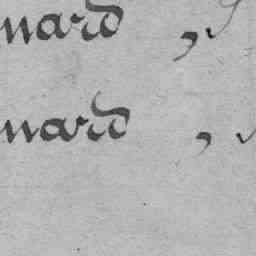 nard ,
nard ,